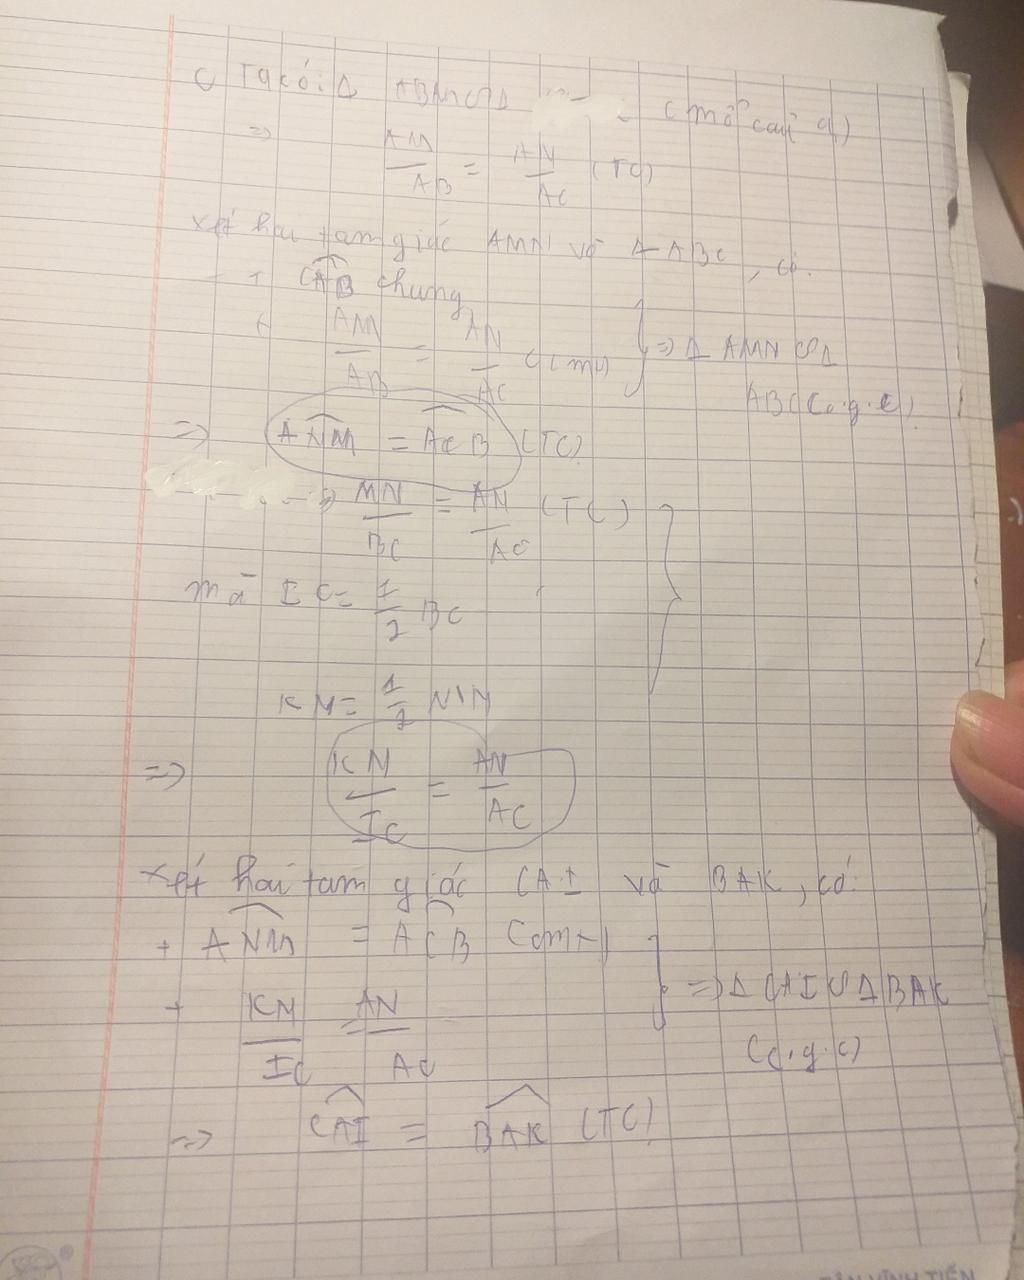 c) Ta có: Δ ABM ∽ Δ (mở câu a)
⇒ AM/AB = AN/AC (TC)
Xét hai tam giác AMN và ABC, có:
+ CAB chung
+ AM/AB = AN/AC (cmt) } ⇒ Δ AMN ∽ Δ
ABC (c.g.c)
⇒ ANM = ACB (TC)
⇒ MN/BC = AN/AC (TC)
mà IC = 1/2 BC
KN = 1/2 MN
⇒ KN/IC = AN/AC
Xét hai tam giác CAI và BAK, có:
+ ANM = ACB (cmt)
+ KN/IC = AN/AC } ⇒ Δ CAI ∽ Δ BAK
(c.g.c)
⇒ CAI = BAK (TC)